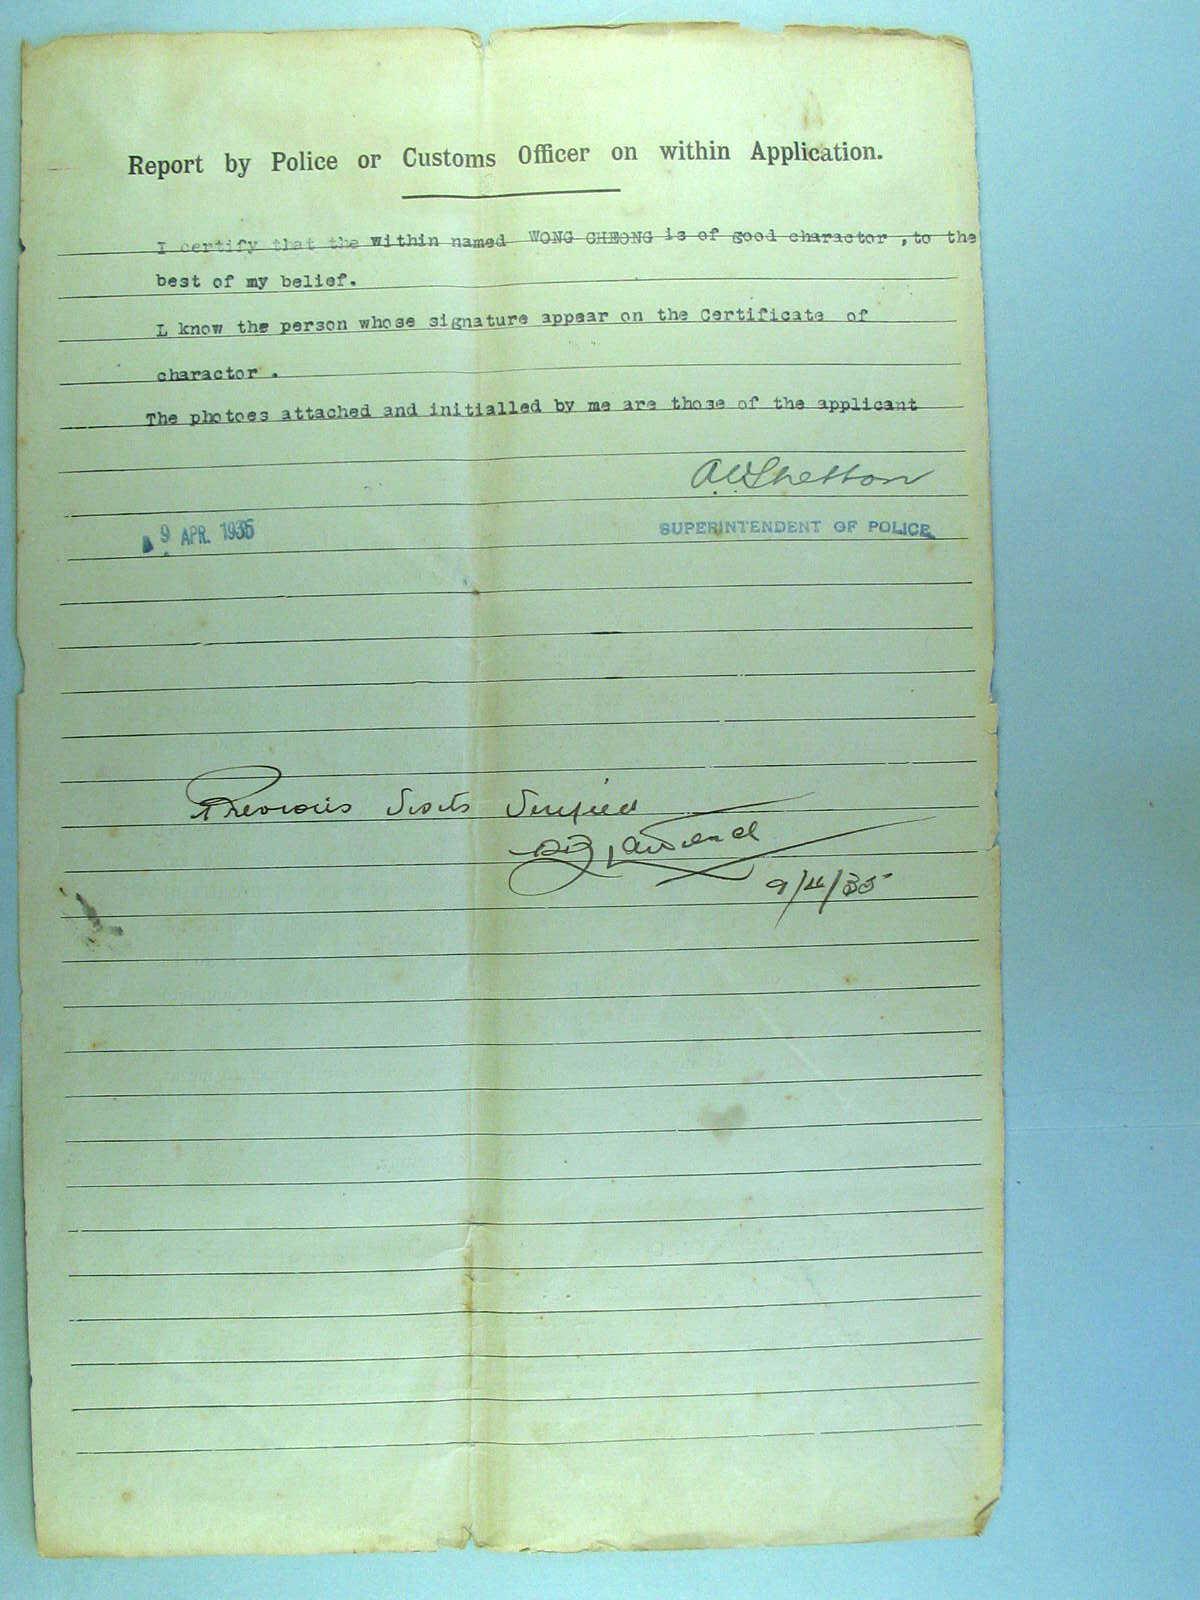 Report by Police or Customs Officer on within Application.
I certify that the within named WONG CHEONG is of good charactor , to the
best of my belief.
I know the person whose signature appear on the Certificate of
charactor .
The photoes attached and initialled by me are those of the applicant
SUPERINTENDENT OF POLICE
9 APR. 1935
Previous Visits Verified
9/4/35